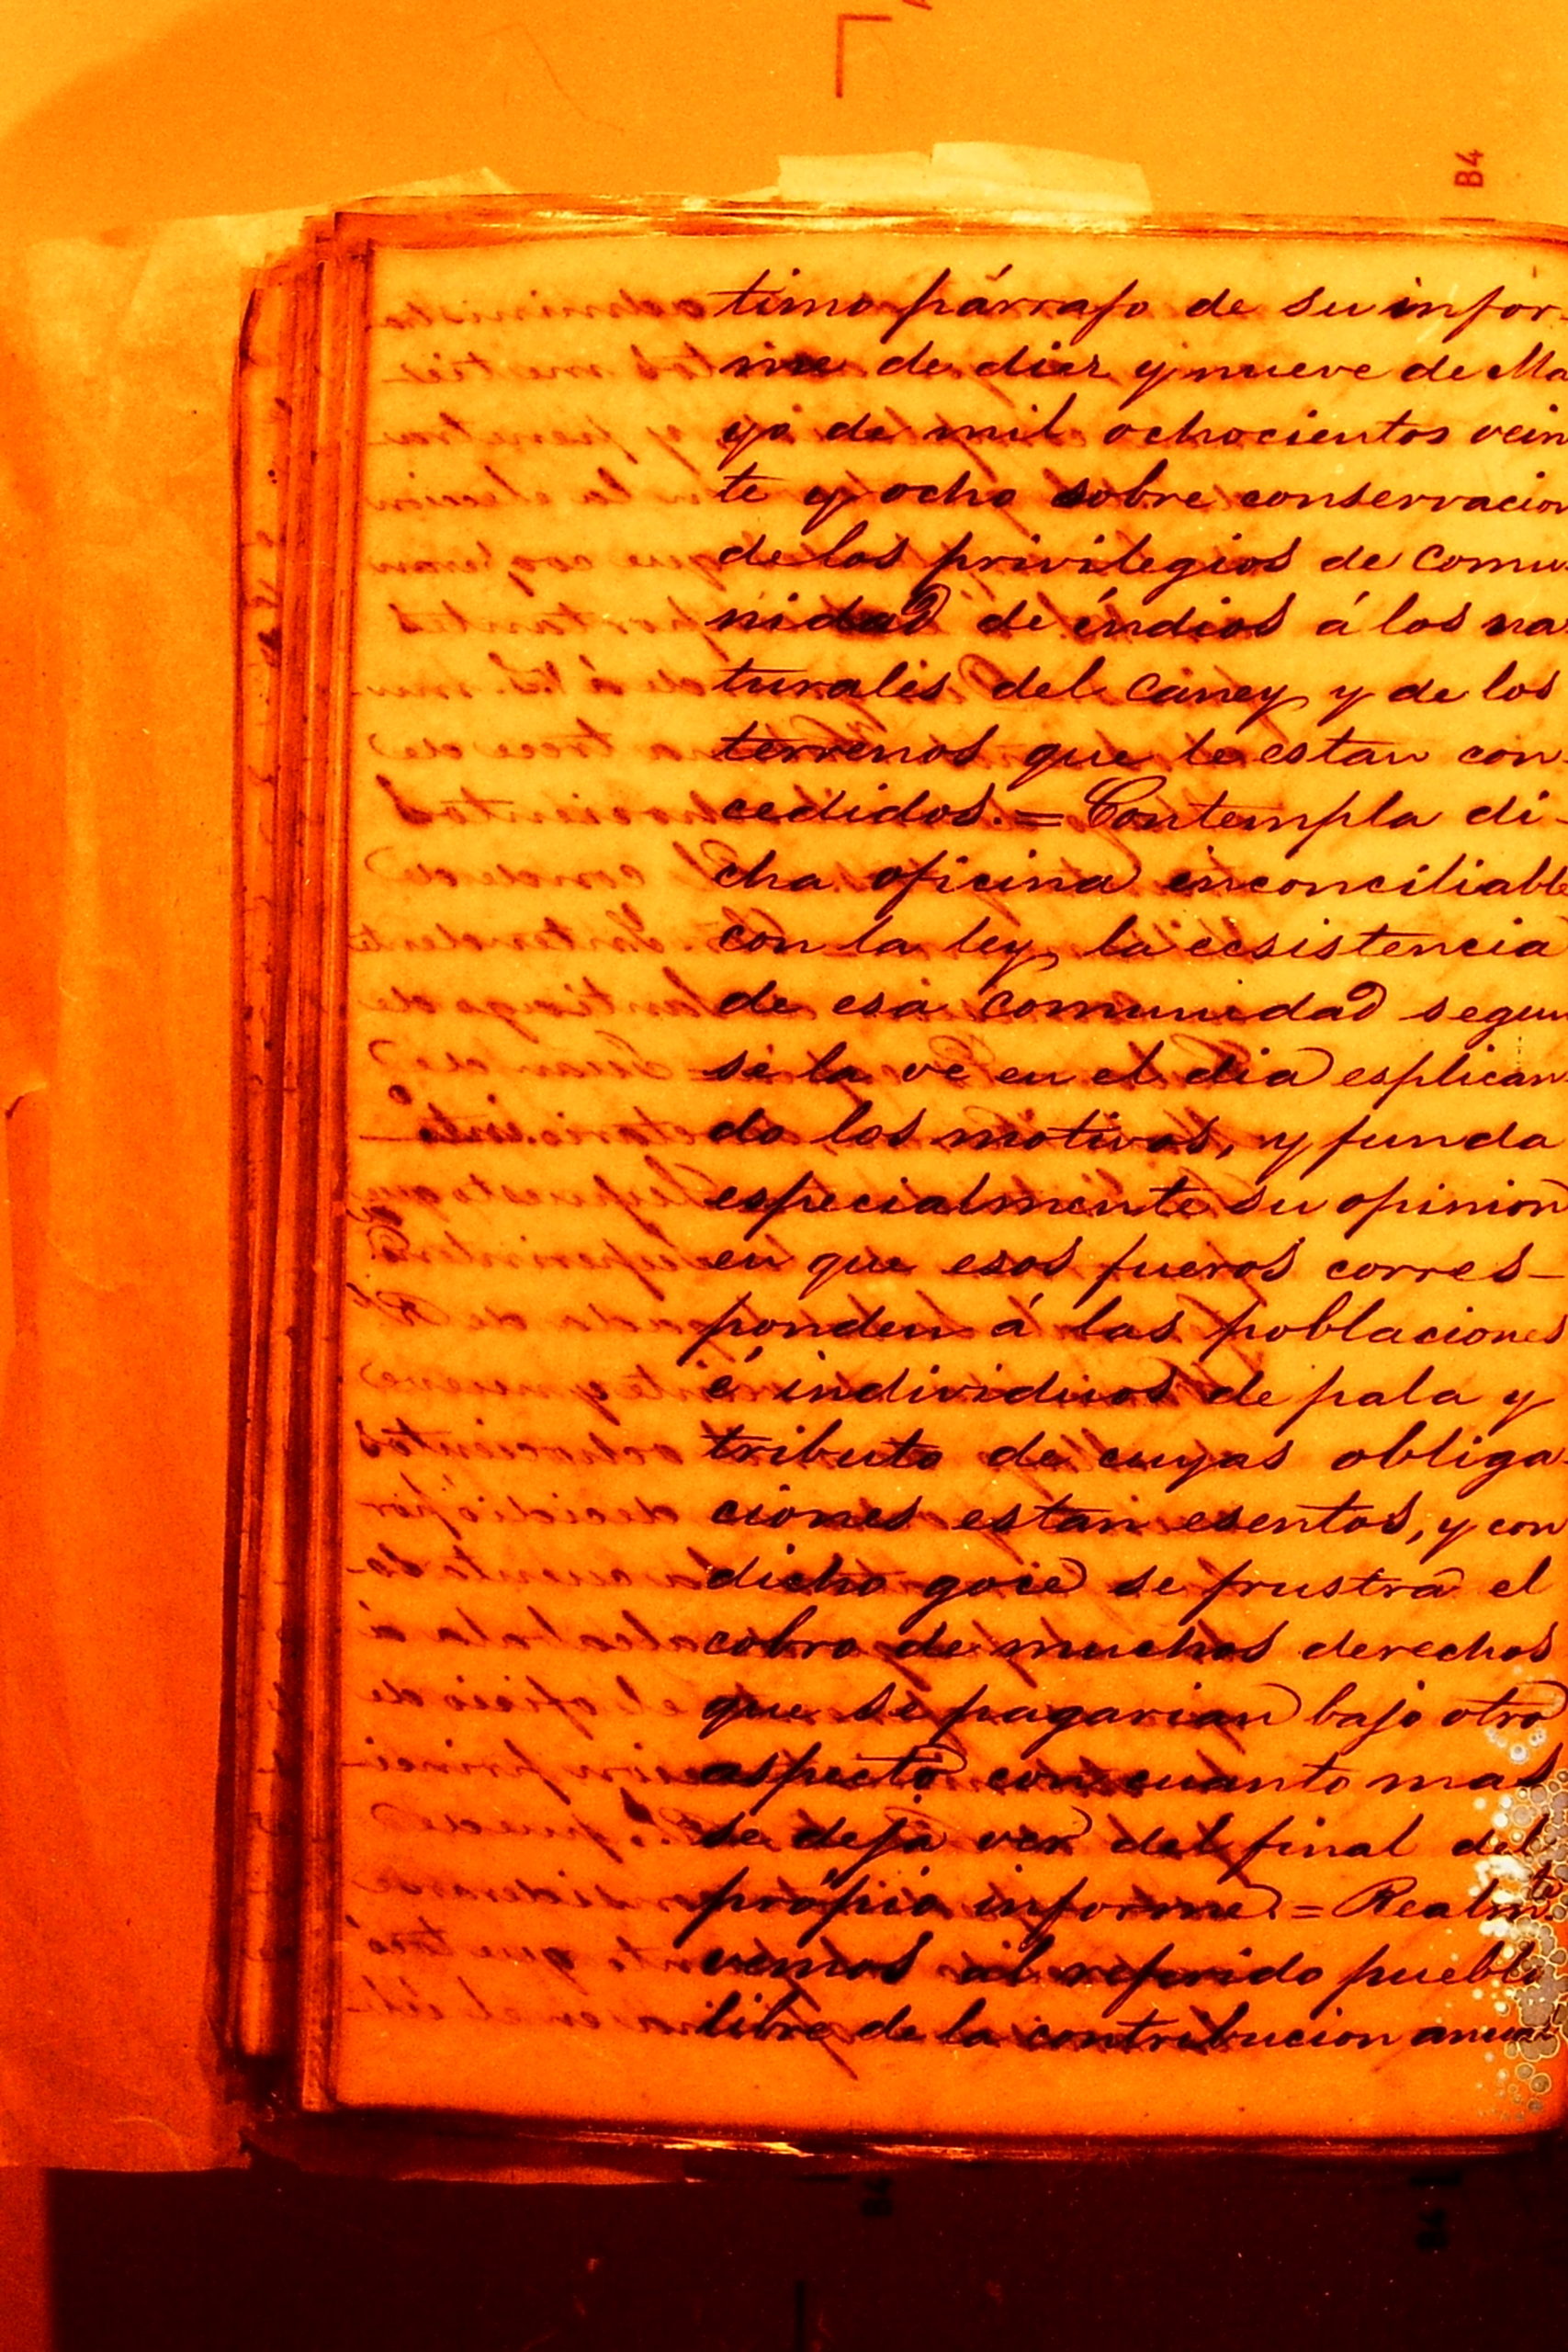 B4
timo párrafo de su infor-
me de diez y nueve de Ma
yo de mil ochocientos vein
te y ocho sobre conservacion
de los privilegios de comu-
nidad de indios á los na
turales del Caney y de los
terrenos que le estan con-
cedidos.= Contempla di-
cha oficina inconciliable
con la ley la ecsistencia
de esa comunidad segun
se la ve en el dia esplican
do los motivos, y funda
especialmente su opinion
en que esos fueros corres-
ponden á las poblaciones
é individuos de pala y
tributo de cuyas obliga-
ciones estan esentos, y con
dicho goce se frustra el
cobro de muchos derechos
que se pagarian bajo otro
aspecto con cuanto mas
se deja ver del final del
propio informe.= Realmte
vemos al referido pueblo
libre de la contribucion anual
B4
B4